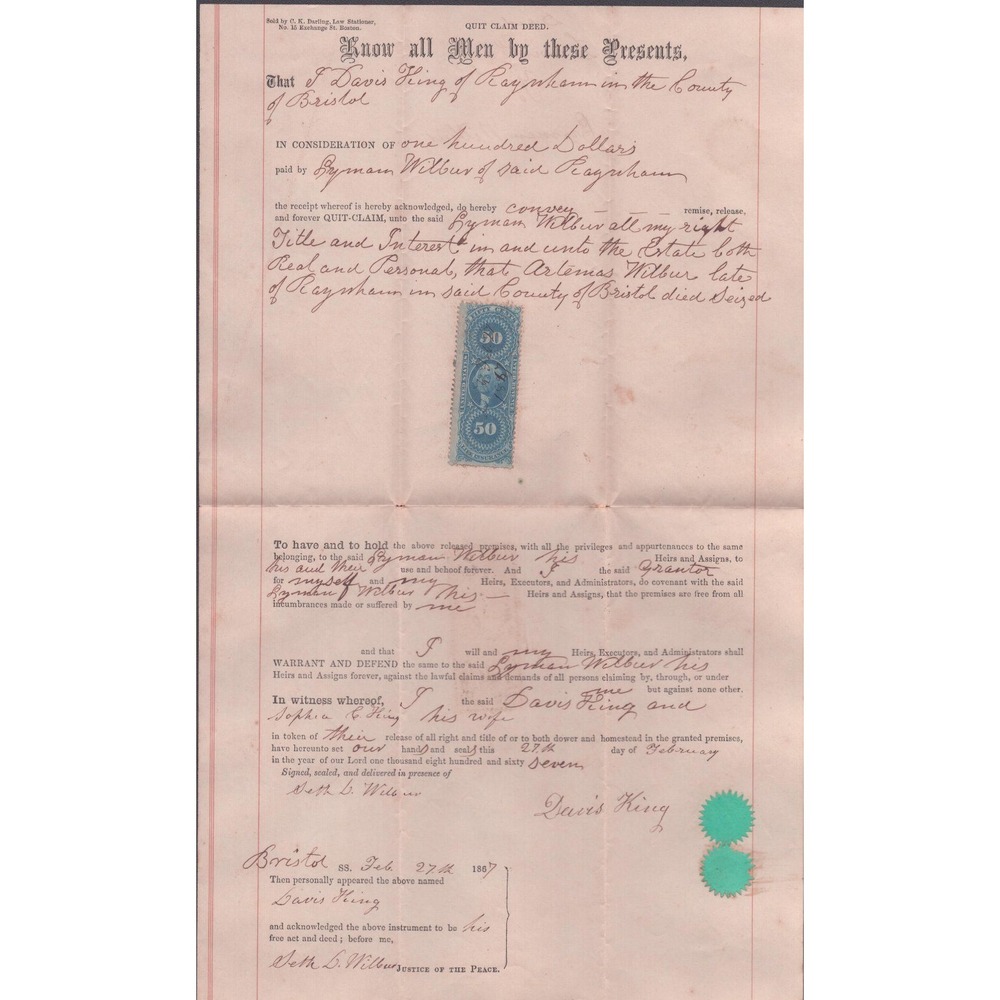 Sold by C. K. Darling, Law Stationer,
No. 15 Exchange St. Boston.
QUIT CLAIM DEED.
Know all Men by these Presents,
That I Davis King of Raynham in the County
of Bristol
IN CONSIDERATION OF one hundred Dollars
paid by Lyman Wilbur of said Raynham
the receipt whereof is hereby acknowledged, do hereby convey — — remise, release,
and forever QUIT-CLAIM, unto the said Lyman Wilbur all my right
Title and Interest in and unto the Estate both
Real and Personal, that Artemas Wilbur late
of Raynham in said County of Bristol died Seized
FIFTY CENTS
50
UNITED STATES
50
INSURANCE
To have and to hold the above released premises, with all the privileges and appurtenances to the same
belonging, to the said Lyman Wilbur his Heirs and Assigns, to
his and their use and behoof forever. And I the said Grantor
for myself and my Heirs, Executors, and Administrators, do covenant with the said
Lyman Wilbur his — Heirs and Assigns, that the premises are free from all
incumbrances made or suffered by me
and that I will and my Heirs, Executors, and Administrators shall
WARRANT AND DEFEND the same to the said Lyman Wilbur his
Heirs and Assigns forever, against the lawful claims and demands of all persons claiming by, through, or under
me but against none other.
In witness whereof, I the said Davis King and
Sophia C King his wife
in token of their release of all right and title of or to both dower and homestead in the granted premises,
have hereunto set our hands and seals this 27th day of February
in the year of our Lord one thousand eight hundred and sixty seven
Signed, sealed, and delivered in presence of
Seth D. Wilbur
Davis King
Bristol SS. Feb 27th 1867
Then personally appeared the above named
Davis King
and acknowledged the above instrument to be his
free act and deed; before me,
Seth D. Wilbur JUSTICE OF THE PEACE.